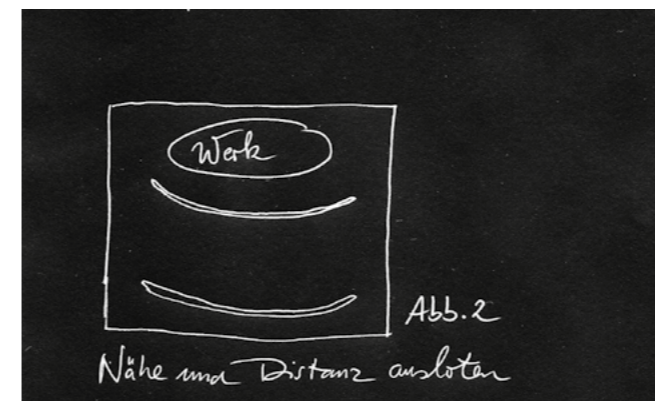 Werk
Abb. 2
Nähe und Distanz ausloten